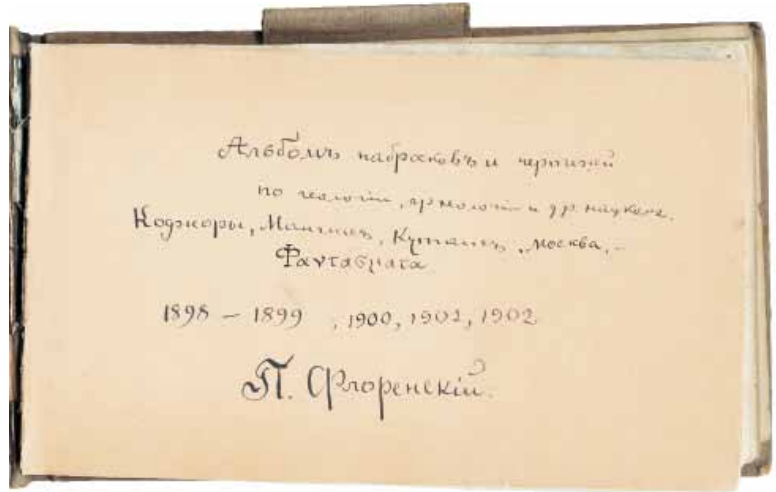 Альбомъ набросковъ и чертежей
по геологіи, и др. наукамъ.
Коджоры, Манглисъ, Кутаисъ, Москва, –
1898 – 1899 , 1900, 1901, 1902
П. Флоренскій.